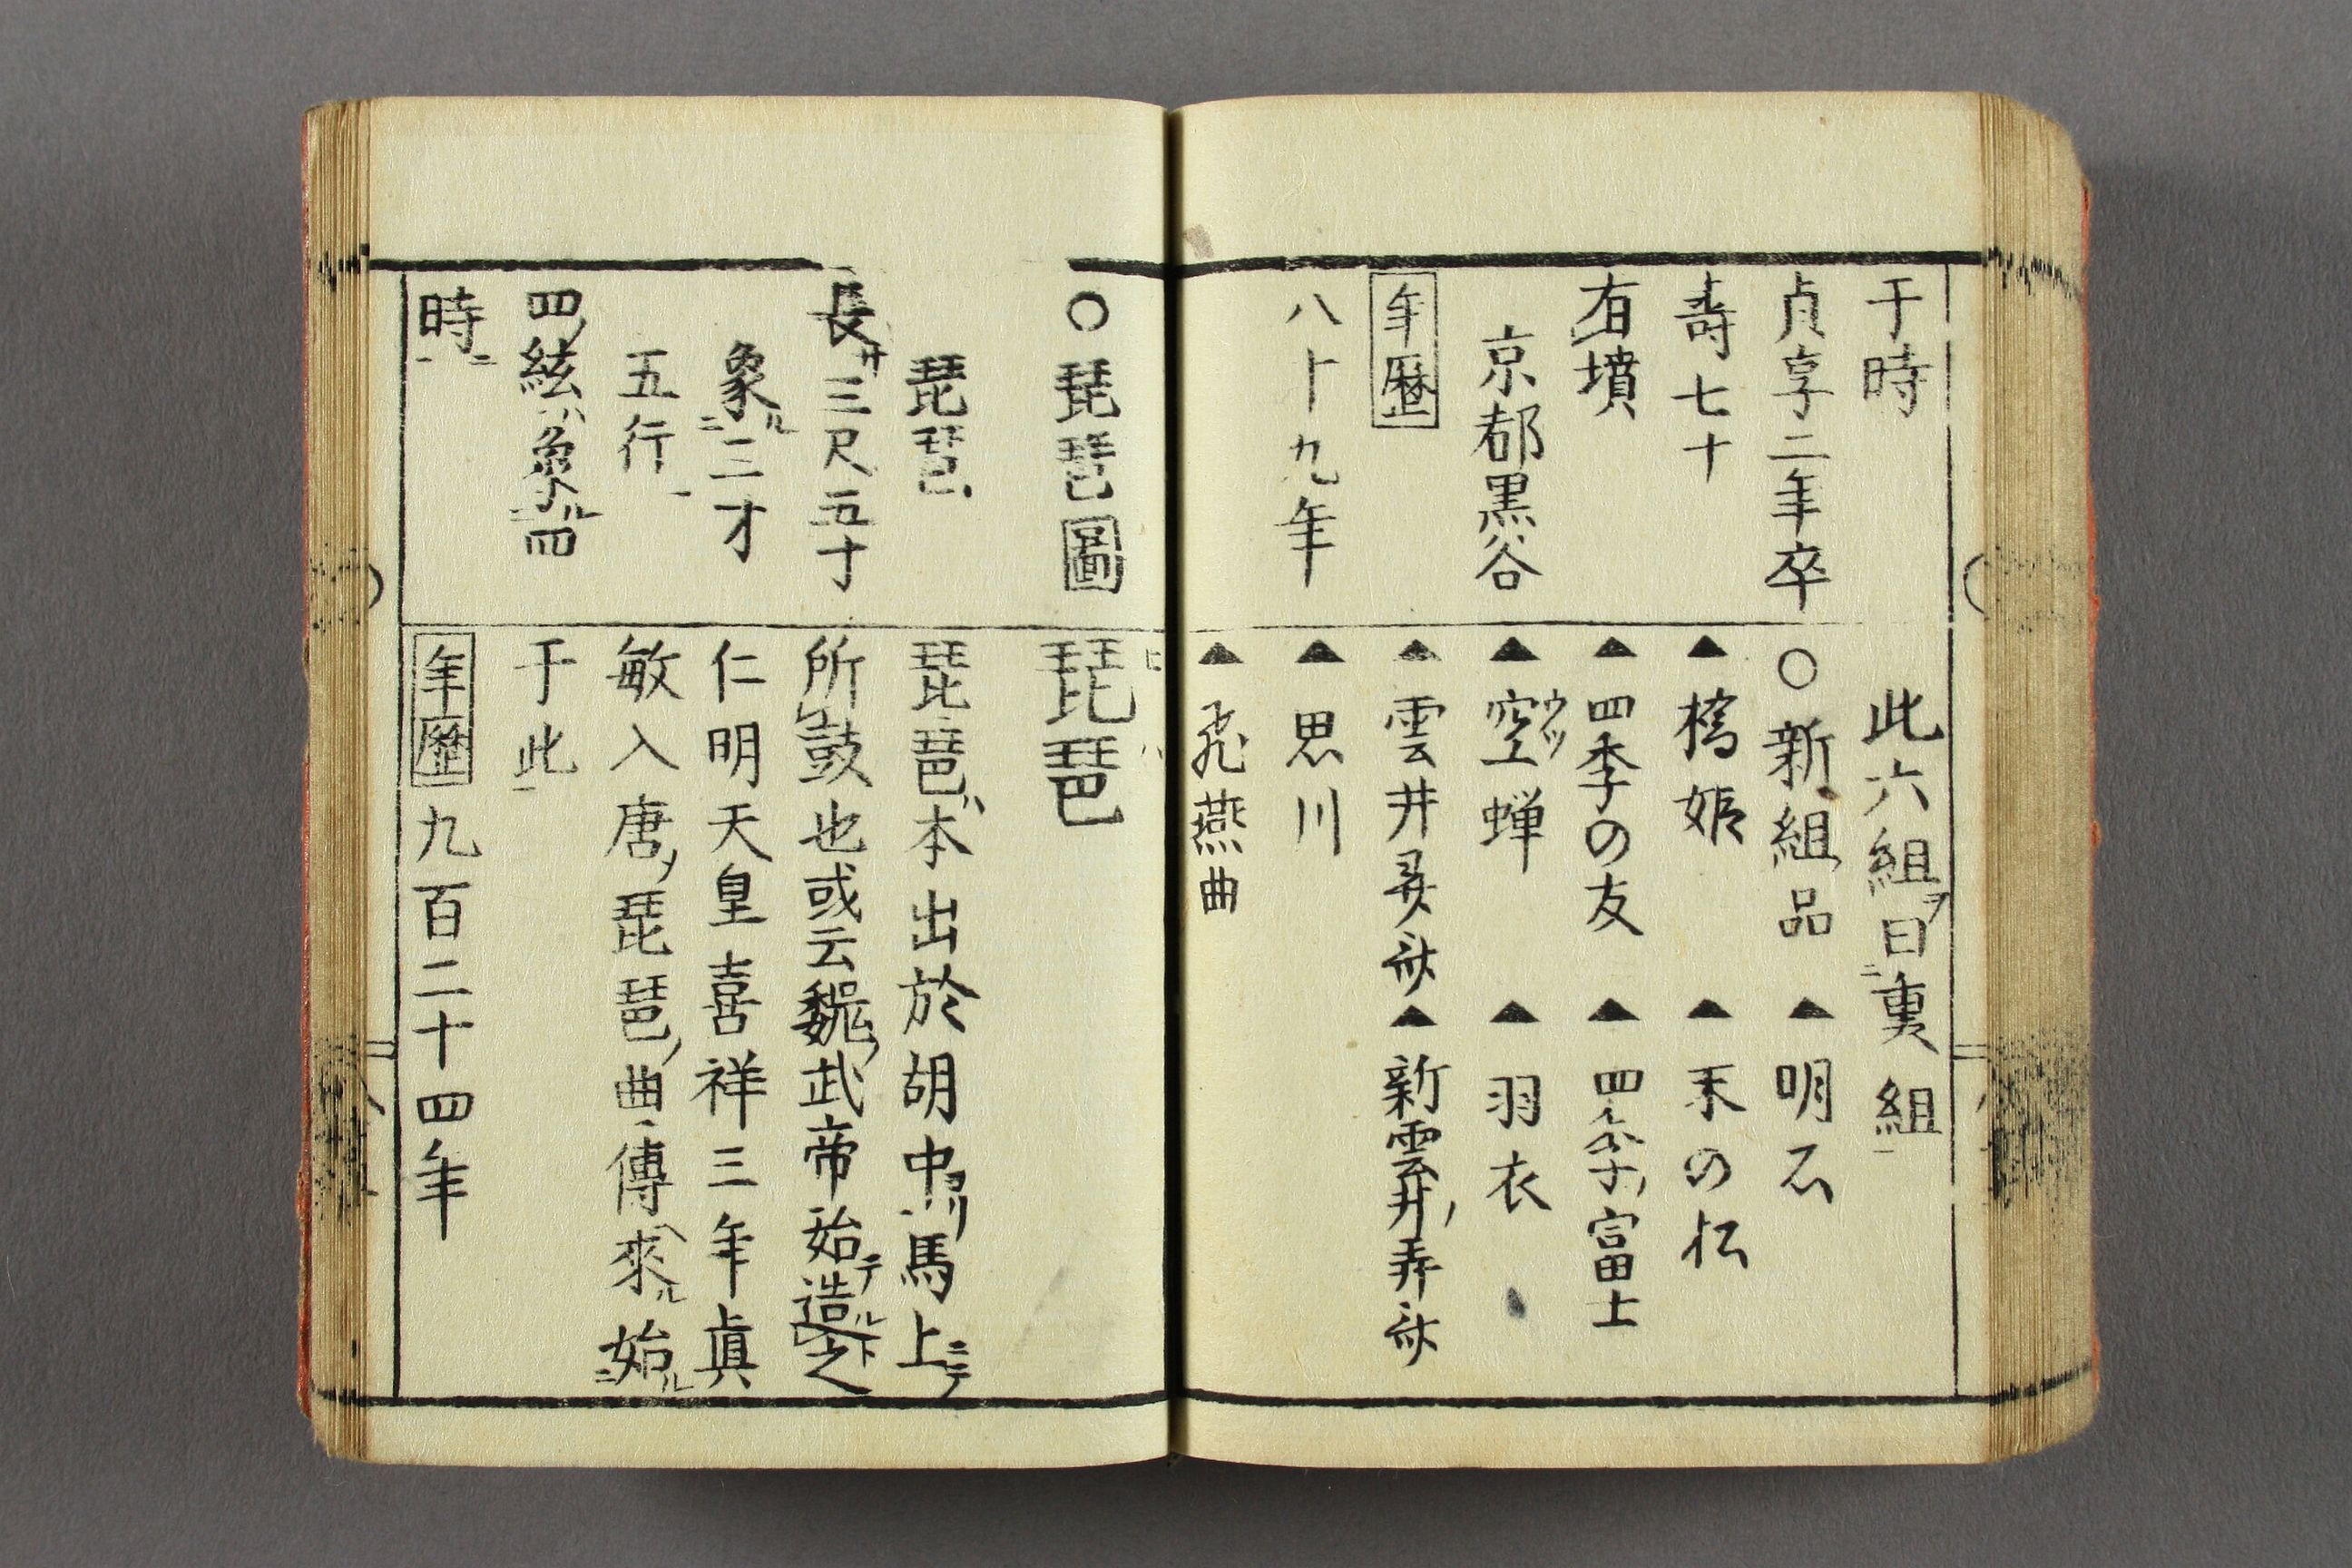 于時
貞享二年卒
壽七十
有墳
京都黒谷
年歴
八十九年
此六組ヲ曰裏組
○新組品▲明石
▲橋姫▲末の松
▲四季の友▲四季ノ富士
▲空蝉ウツ▲羽衣
▲雲井弄斎▲新雲井ノ弄斎
▲思川
▲飛燕曲
○琵琶圖
琵琶
長サ三尺五寸
象ル二三才
五行一
四ノ絃ハ象ル二四
時一ニ
琵琶ビハ
琵琶ハ本出於胡中ヨリ馬上ニテ
所鼓也或云魏ノ武帝始テ造ルト之
仁明天皇嘉祥三年眞
敏入唐ノ琵琶ノ曲傳ヘ來ル始ル二
于此一
年歴九百二十四年